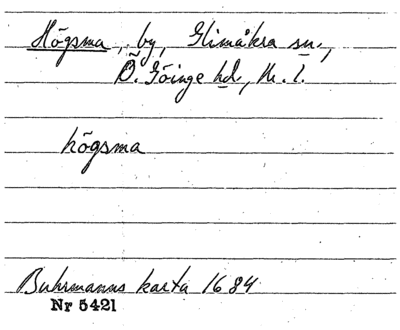 Högsma, by, Glimåkra sn.,
Ö. Göinge hd, Kr. l.
högsma
Buhrmanns karta 1684
Nr 5421